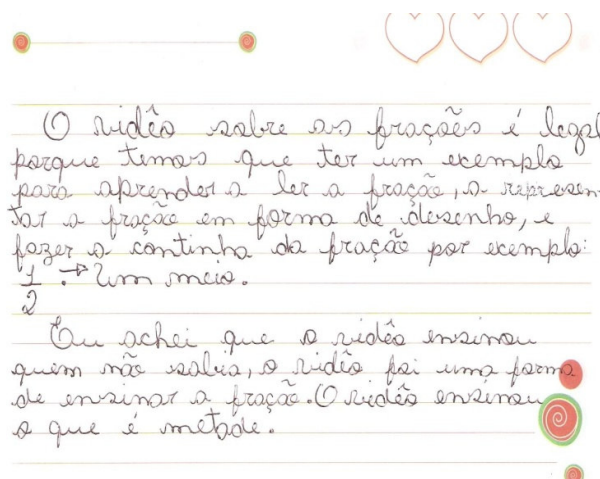 O vidêo sobre as fraçoẽs é legal
porque temos que ter um exemplo
para aprender a ler a fração, a represen-
tar a fração em forma de desenho, e
fazer a continha da fração por exemplo:
1/2 .→ Um meio.
Eu achei que o vidêo ensinou
quem não sabia, o vidêo foi uma forma
de ensinar a fração. O vidêo ensinou
o que é metade.